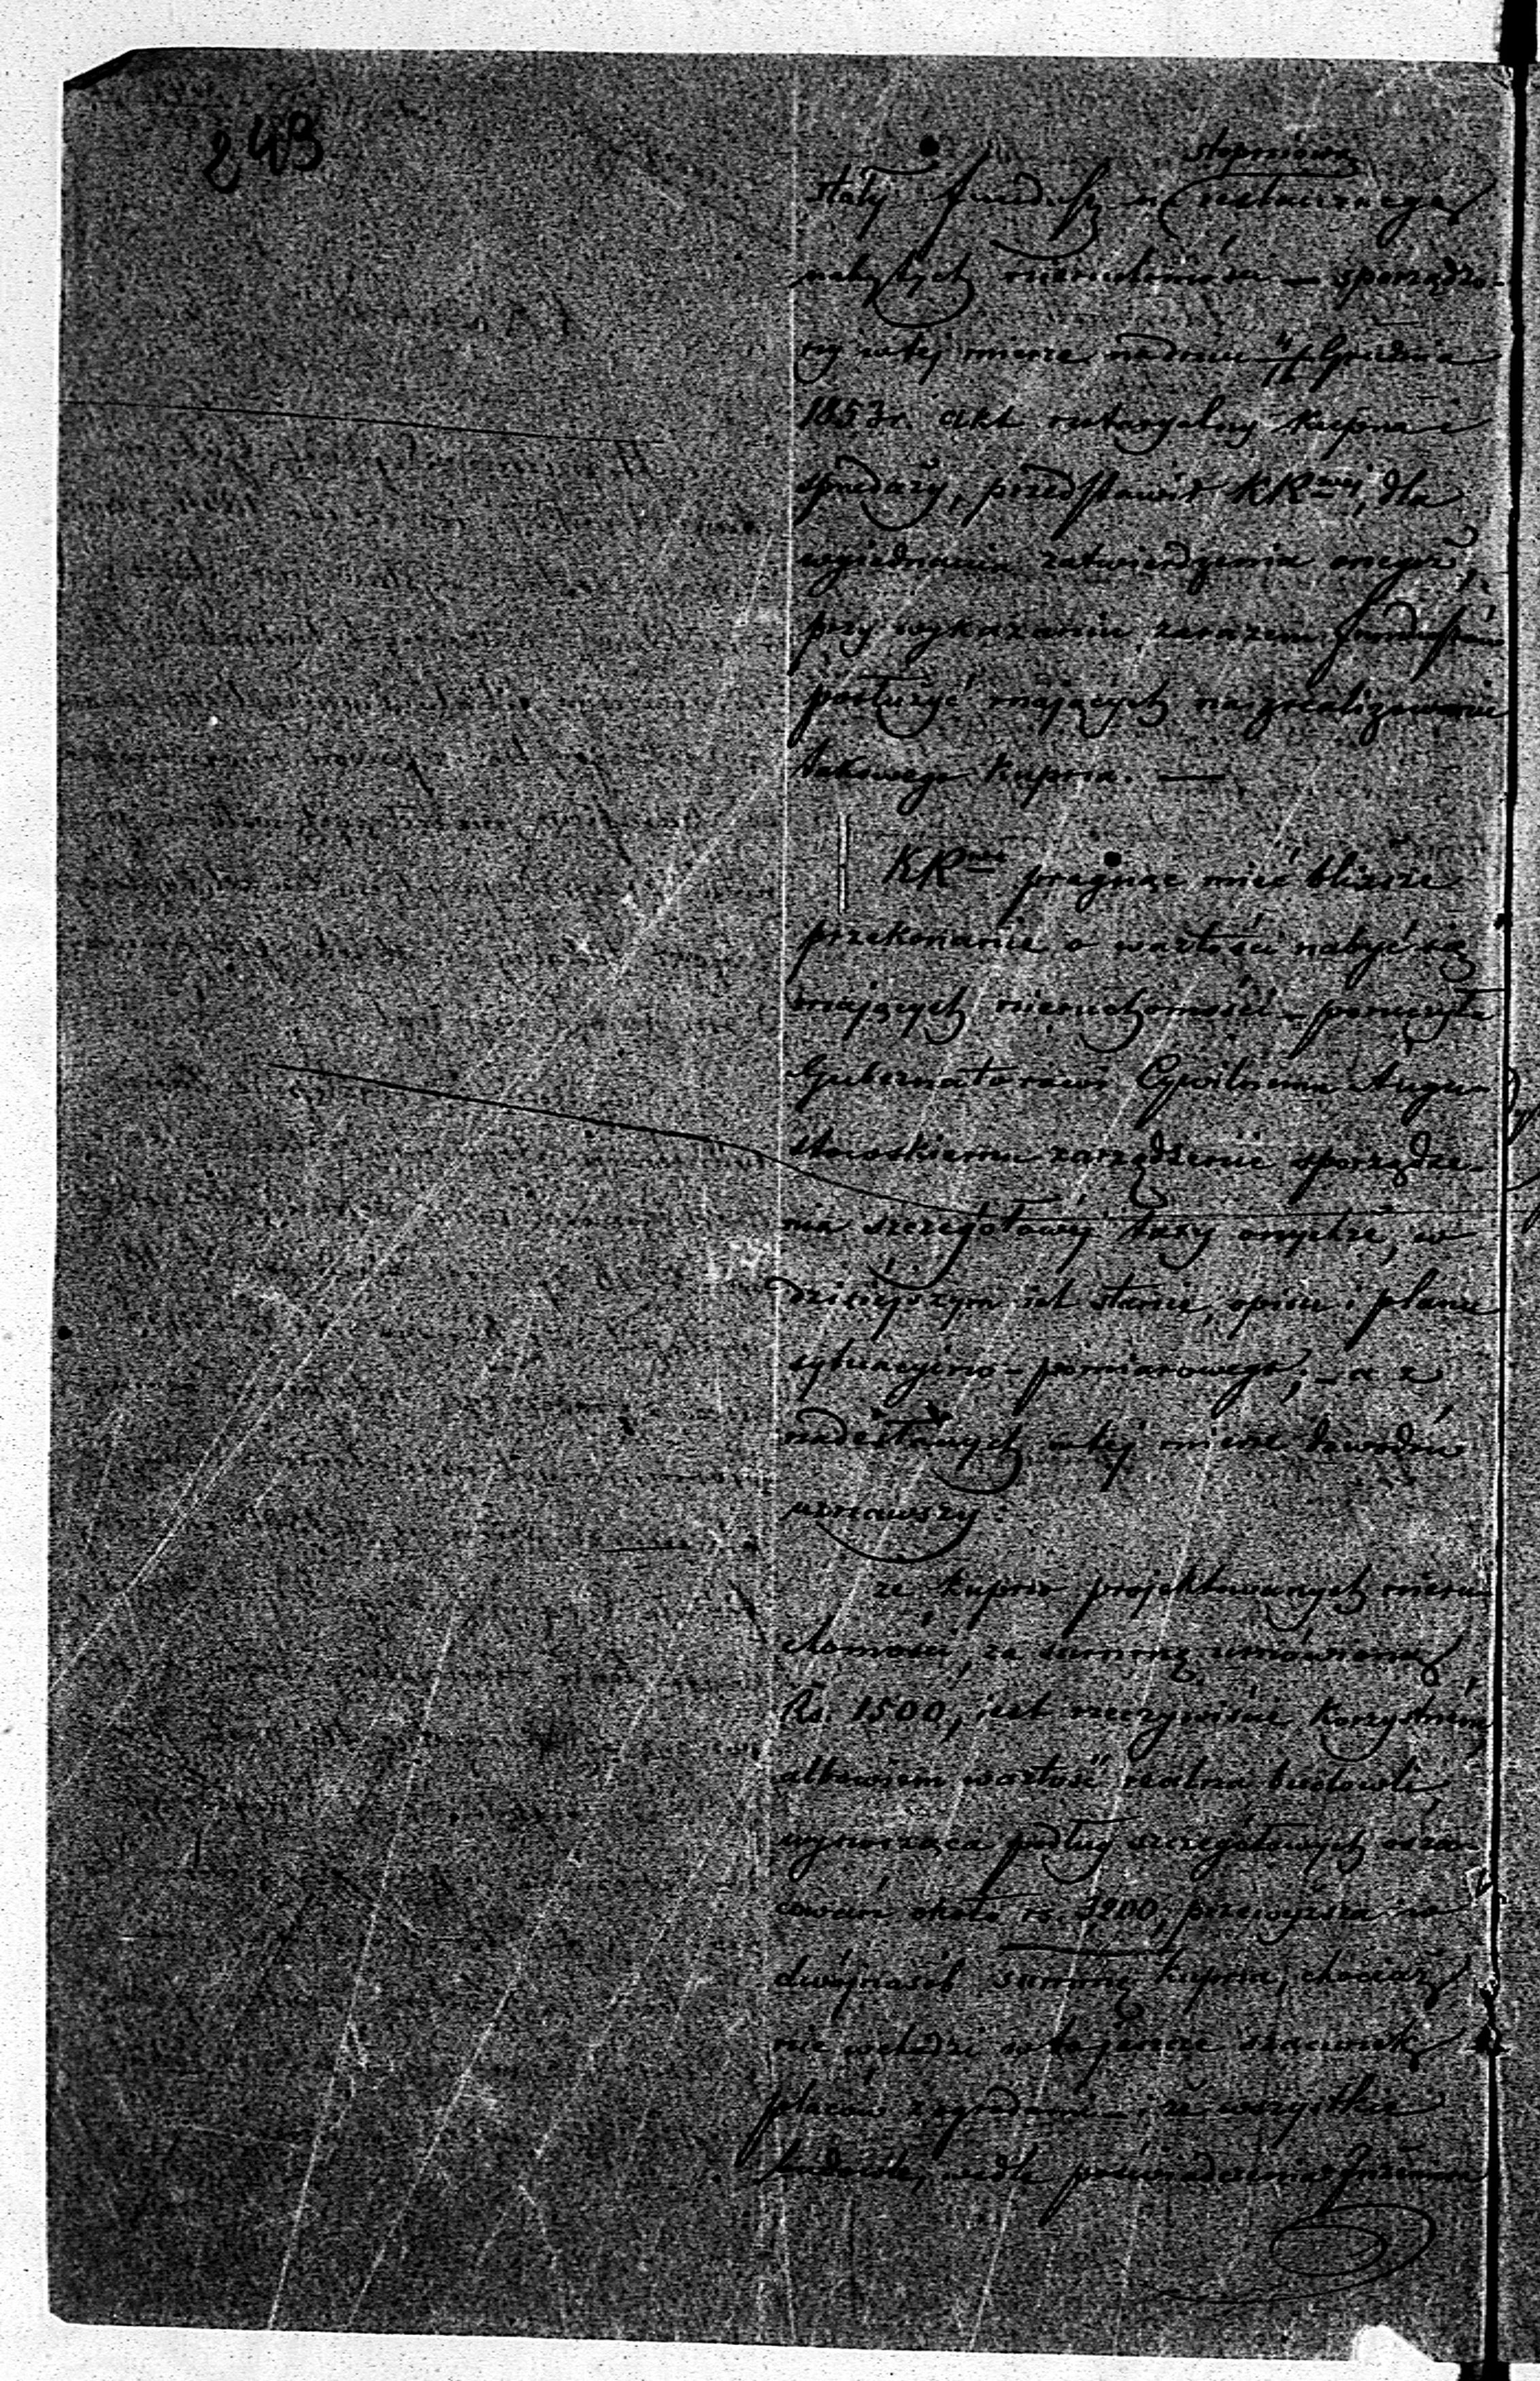 243
stopniową
stały fundusz na restauracyą
nabytych nieruchomości — sporządzo-
ny w tej mierze na dniu 4/16 Grudnia
1853 r. akt rentaryalny kupna i
sprzedaży, przedstawił KRwej, dla
wyjednania zatwierdzenia onegoż,
przy wykazaniu zarazem funduszów
posłużyć mających na zrealizowanie
takowego kupna. —
KRwa pragnąc mieć bliższe
przekonanie o wartości nabyć się
mających nieruchomości — poruczyła
Gubernatorowi Cywilnemu Augu-
stowskiemu zarządzenie sporządze-
nia szczegółowéj taxy onychże, w
dzisiejszym ich stanie, opisu i planu
sytuacyjno-pomiarowego; — a z
nadesłanych w téj mierze dowodów
uznawszy:
że kupno projektowanych nieru-
chomości, za summę umówioną
Rs. 1500, jest rzeczywiście korzystném,
albowiem wartość realna budowli,
wynosząca podług szczegółowych osza-
cowań około rs. 3200, przewyższa w
dwójnasób summę kupna, chociaż
nie wchodzi w to jeszcze szacunek
placów z ogrodami — i że wszystkie
budowle, wedle poświadczenia Inżeniera